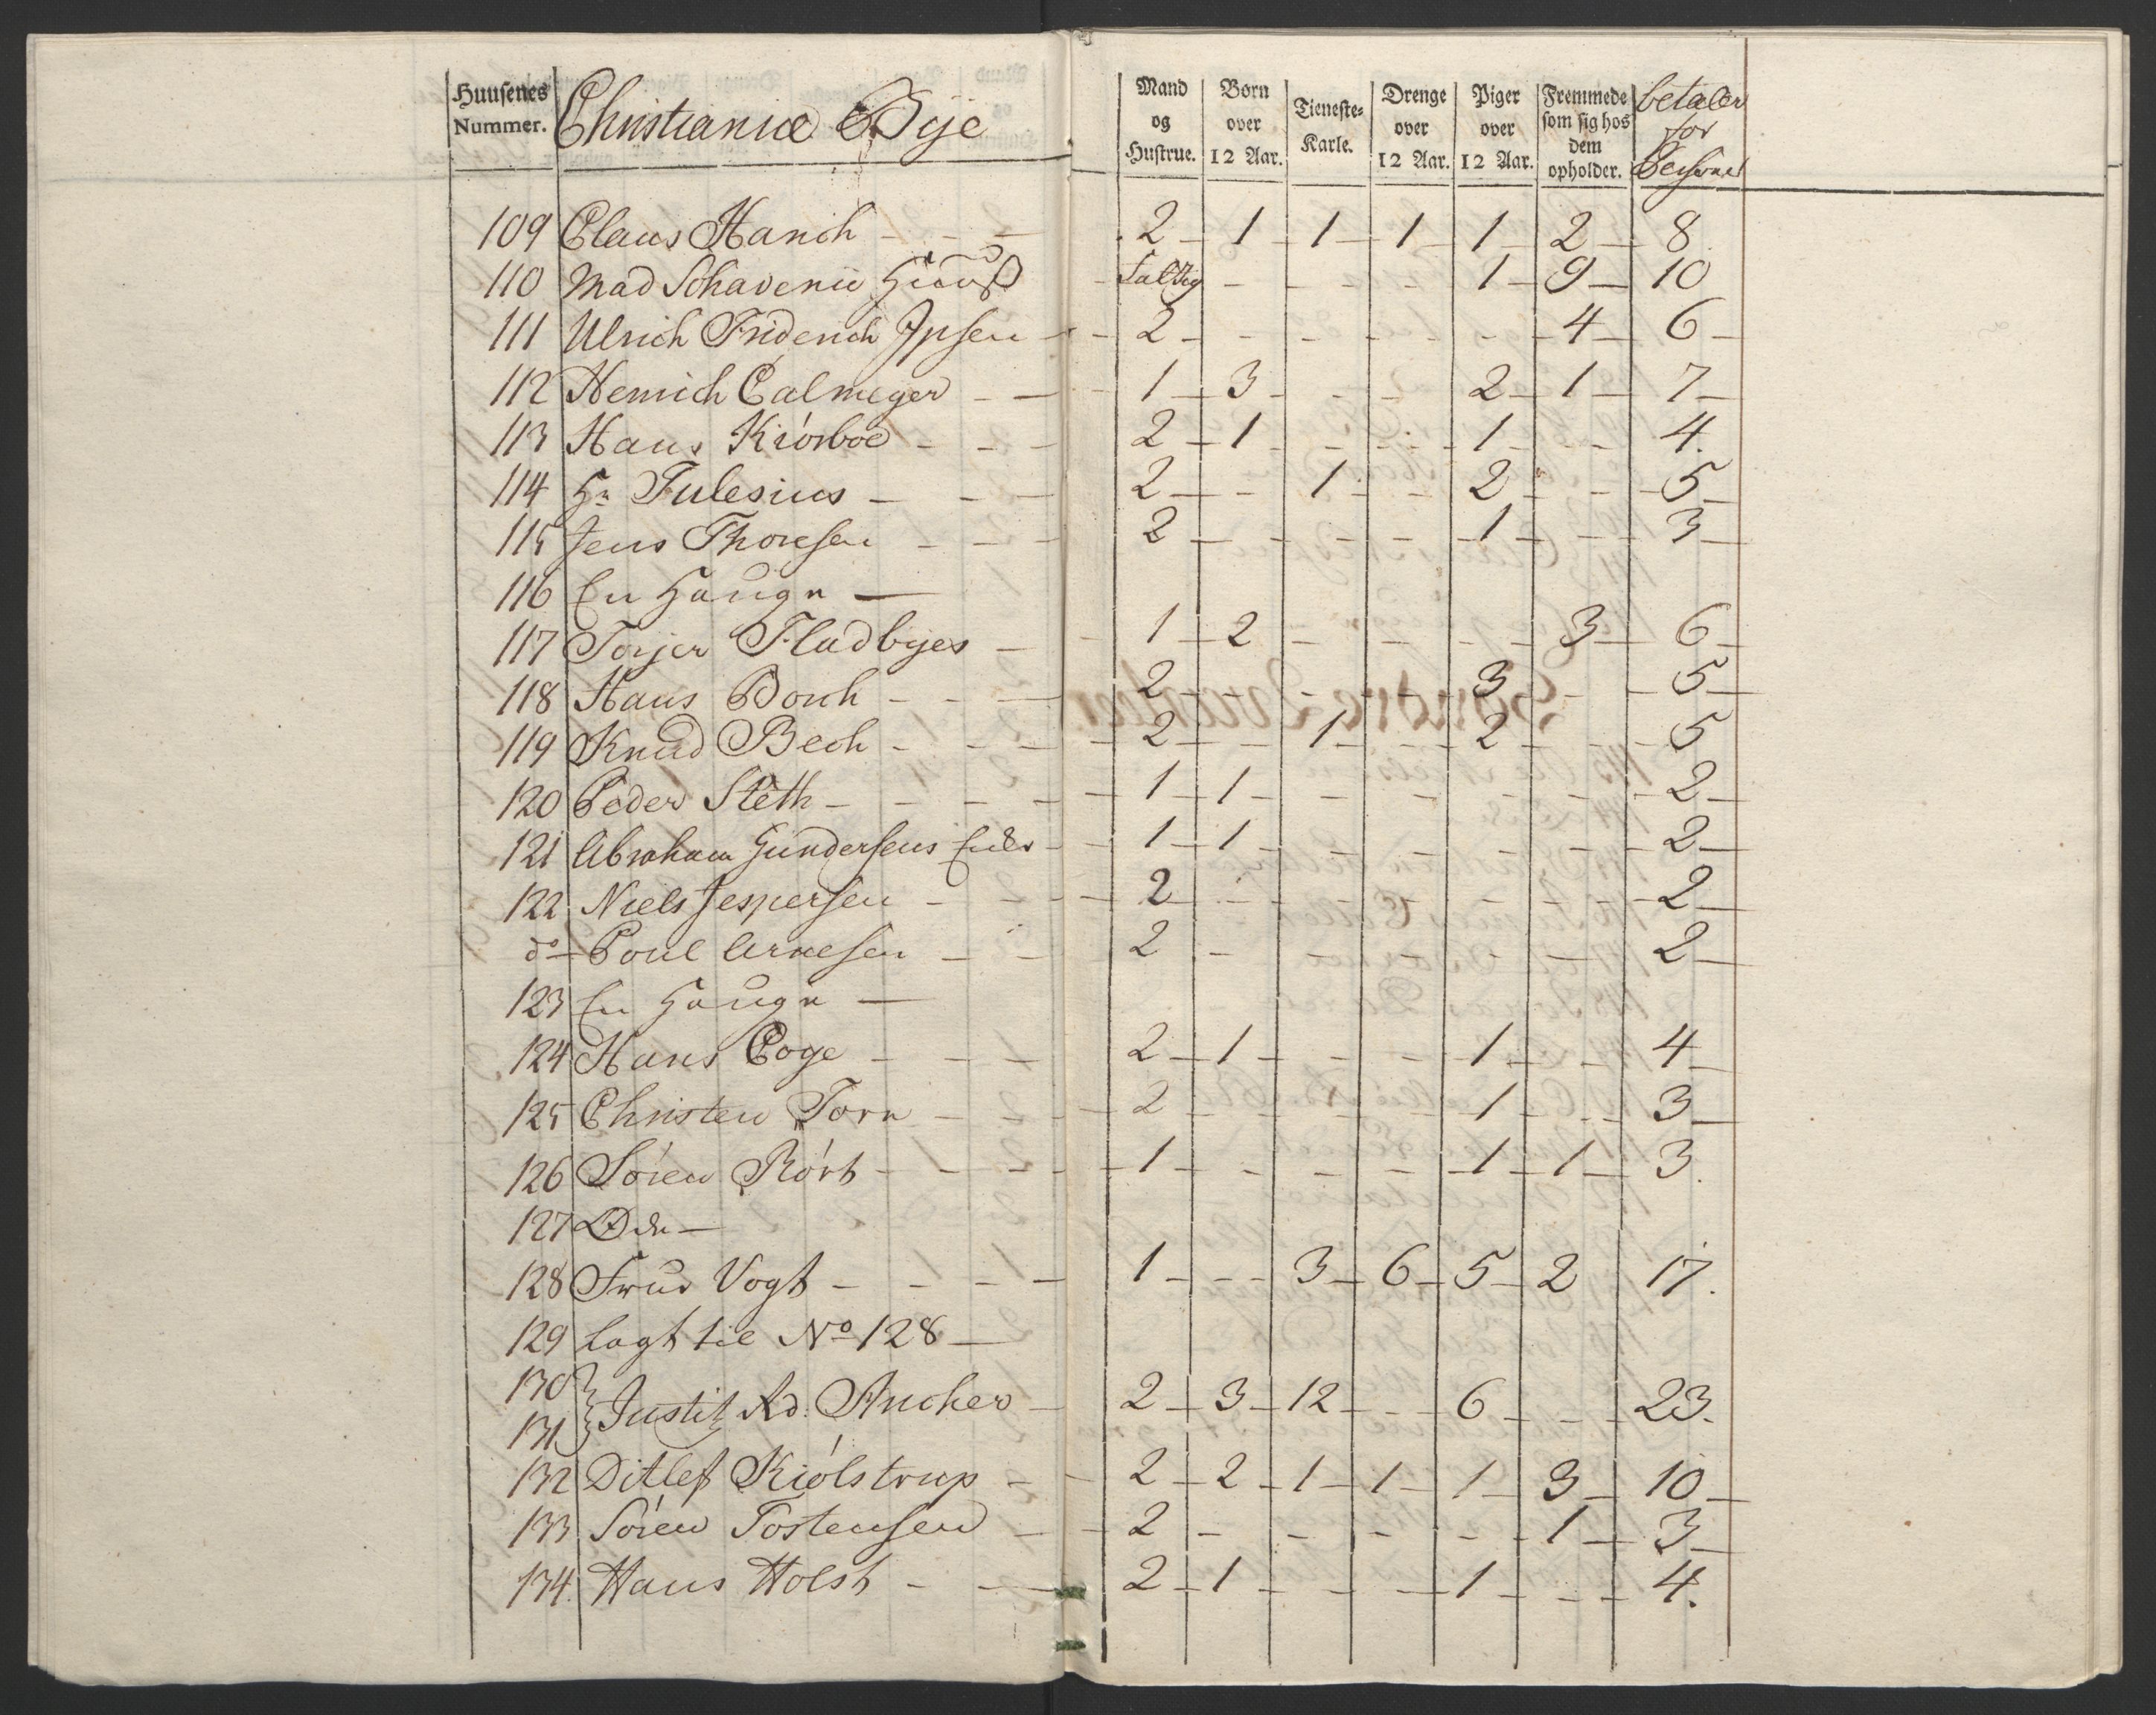 Huusenes Nummer. Christianiæ Bÿe Mand og Hustrue. Børn over 12 Aar. Tieneste-Karle. Drenge over 12 Aar. Piger over 12 Aar. Fremmede som sig hos dem opholder. betaler for Persohner
109 Claus Hanch - - - 2 - 1 - 1 - 1 - 1 - 2 - 8
110 Mad Schavenii Huuß - fattig - - - - 1 - 9 - 10
111 Ulrich Friderich Ipsen - - 2 - - - - - - 4 - 6 -
112 Henrich Calmeÿer - - - 1 - 3 - - - 2 - 1 - 7 -
113 Hans Kiørboe - - - 2 - 1 - - - 1 - - - 4.
114 Hr Tulesius - - - 2 - - 1 - - 2 - - - 5 -
115 Jens Thoresen - - - 2 - - - - 1 - - 3 -
116 En Haugn -
117 Torjer Fladbÿes - - 1 - 2 - - - - 3 - 6 -
118 Hans Borch - - - 2 - - - - 3 - - 5 -
119 Knud Bech - - - - 2 - - 1 - - 2 - - - 5
120 Peder Steth - - - - - 1 - 1 - - - - - - 2 -
121 Abraham Gundersens Enke - 1 - 1 - - - - - - 2 -
122 Niels Jespersen - - - - 2 - - - - - - - 2 -
do Poul Arnesen - - - 2 - - - - - - 2 -
123 En Haugn -
124 Hans Poge - - - 2 - 1 - - - 1 - - 4 -
125 Christen Torn - - - - 2 - - - - 1 - - - 3 -
126 Søren Rørt - - - - - 1 - - - - - 1 - 1 - 3.
127 Øde -
128 Frue Vogt - - - - 1 - - - 3 - 6 - 5 - 2 17.
129 Lagt til No 128 -
130
131 } Justitz Rd: Ancher - 2 - 3 - 12 - - - 6 - - - 23.
132 Ditlef Kiølstrup - - 2 - 2 - 1 - 1 - 1 - 3 - 10 -
133 Søren Tostensen - - 2 - - - - - - 1 - 3 -
134. Hans Holst - - - 2 - 1 - - - - 1 - - - 4.